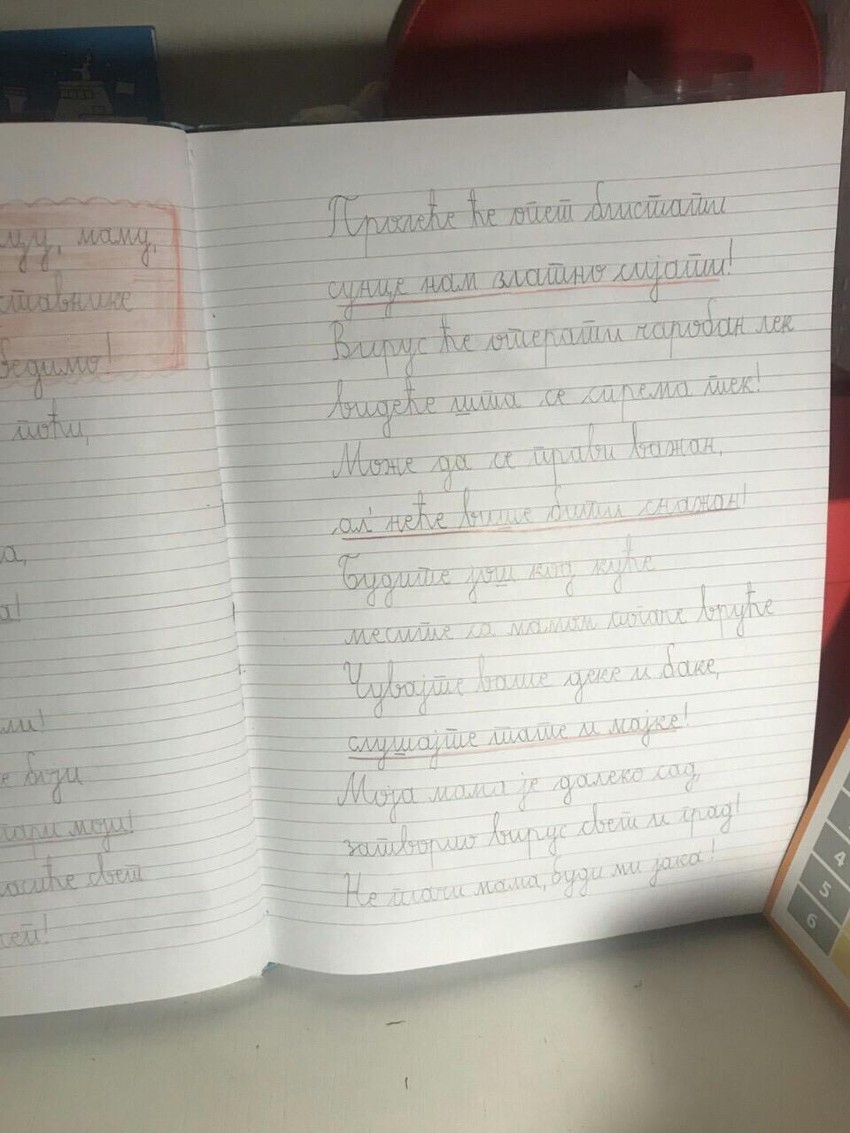 лзу, маму,
ставнике
бедимо!
поћи,
а,
а!
ли!
е боји
тари моји!
ласиће свет
Пролеће ће опет блистати
сунце нам златно сијати!
Вирус ће отерати чаробан лек
видеће шта се спрема тек!
Може да се прави важан,
ал' неће више бити снажан!
Будите још код куће
месите са мамом погаче вруће
Чувајте ваше деке и баке,
слушајте тате и мајке!
Моја мама је далеко сад,
затворио вирус свет и град!
Не плачи мама, буди ми јака!
4
5
6